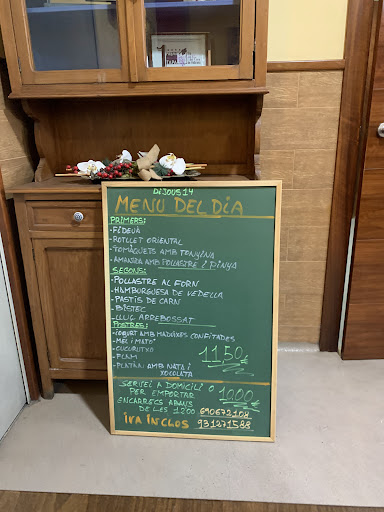 DIJOUS 14
MENU DEL DIA
PRIMERS:
-FIDEUÀ
-ROTLLET ORIENTAL
-TOMÀQUETS AMB TONYINA
-AMANIDA AMB POLLASTRE I PINYA
SEGONS:
-POLLASTRE AL FORN
-HAMBURGUESA DE VEDELLA
-PASTIS DE CARN
-BISTEC
-LLUÇ ARREBOSSAT
POSTRES:
-IOGURT AMB MADUIXES CONFITADES
-MEL I MATO
-CUCURUTXO
-FLAM
-PLÀTAN AMB NATA I
XOCOLATA
11'50€
SERVEI A DOMICILI O
PER EMPORTAR
10'00€
ENCARRECS ABANS
DE LES 12:00
690672108
IVA INCLOS
931271588